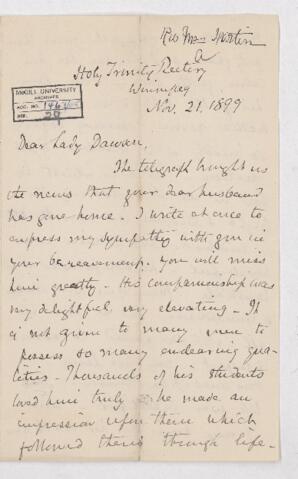 Holy Trinity Rectory
Winnipeg
Nov. 21, 1899
McGILL UNIVERSITY
ARCHIVES
ACC. NO.
REF. 29
Dear Lady Dawson,
The telegraph brought us
the news that your dear husband
has gone home. I write at once to
express my sympathy with you in
your bereavement. You will miss
him greatly. His companionship was
my delightful, my elevating. It
is not given to many men to
possess so many endearing qua-
lities. Thousands of his students
loved him truly & he made an
impression upon them which
followed them through life.